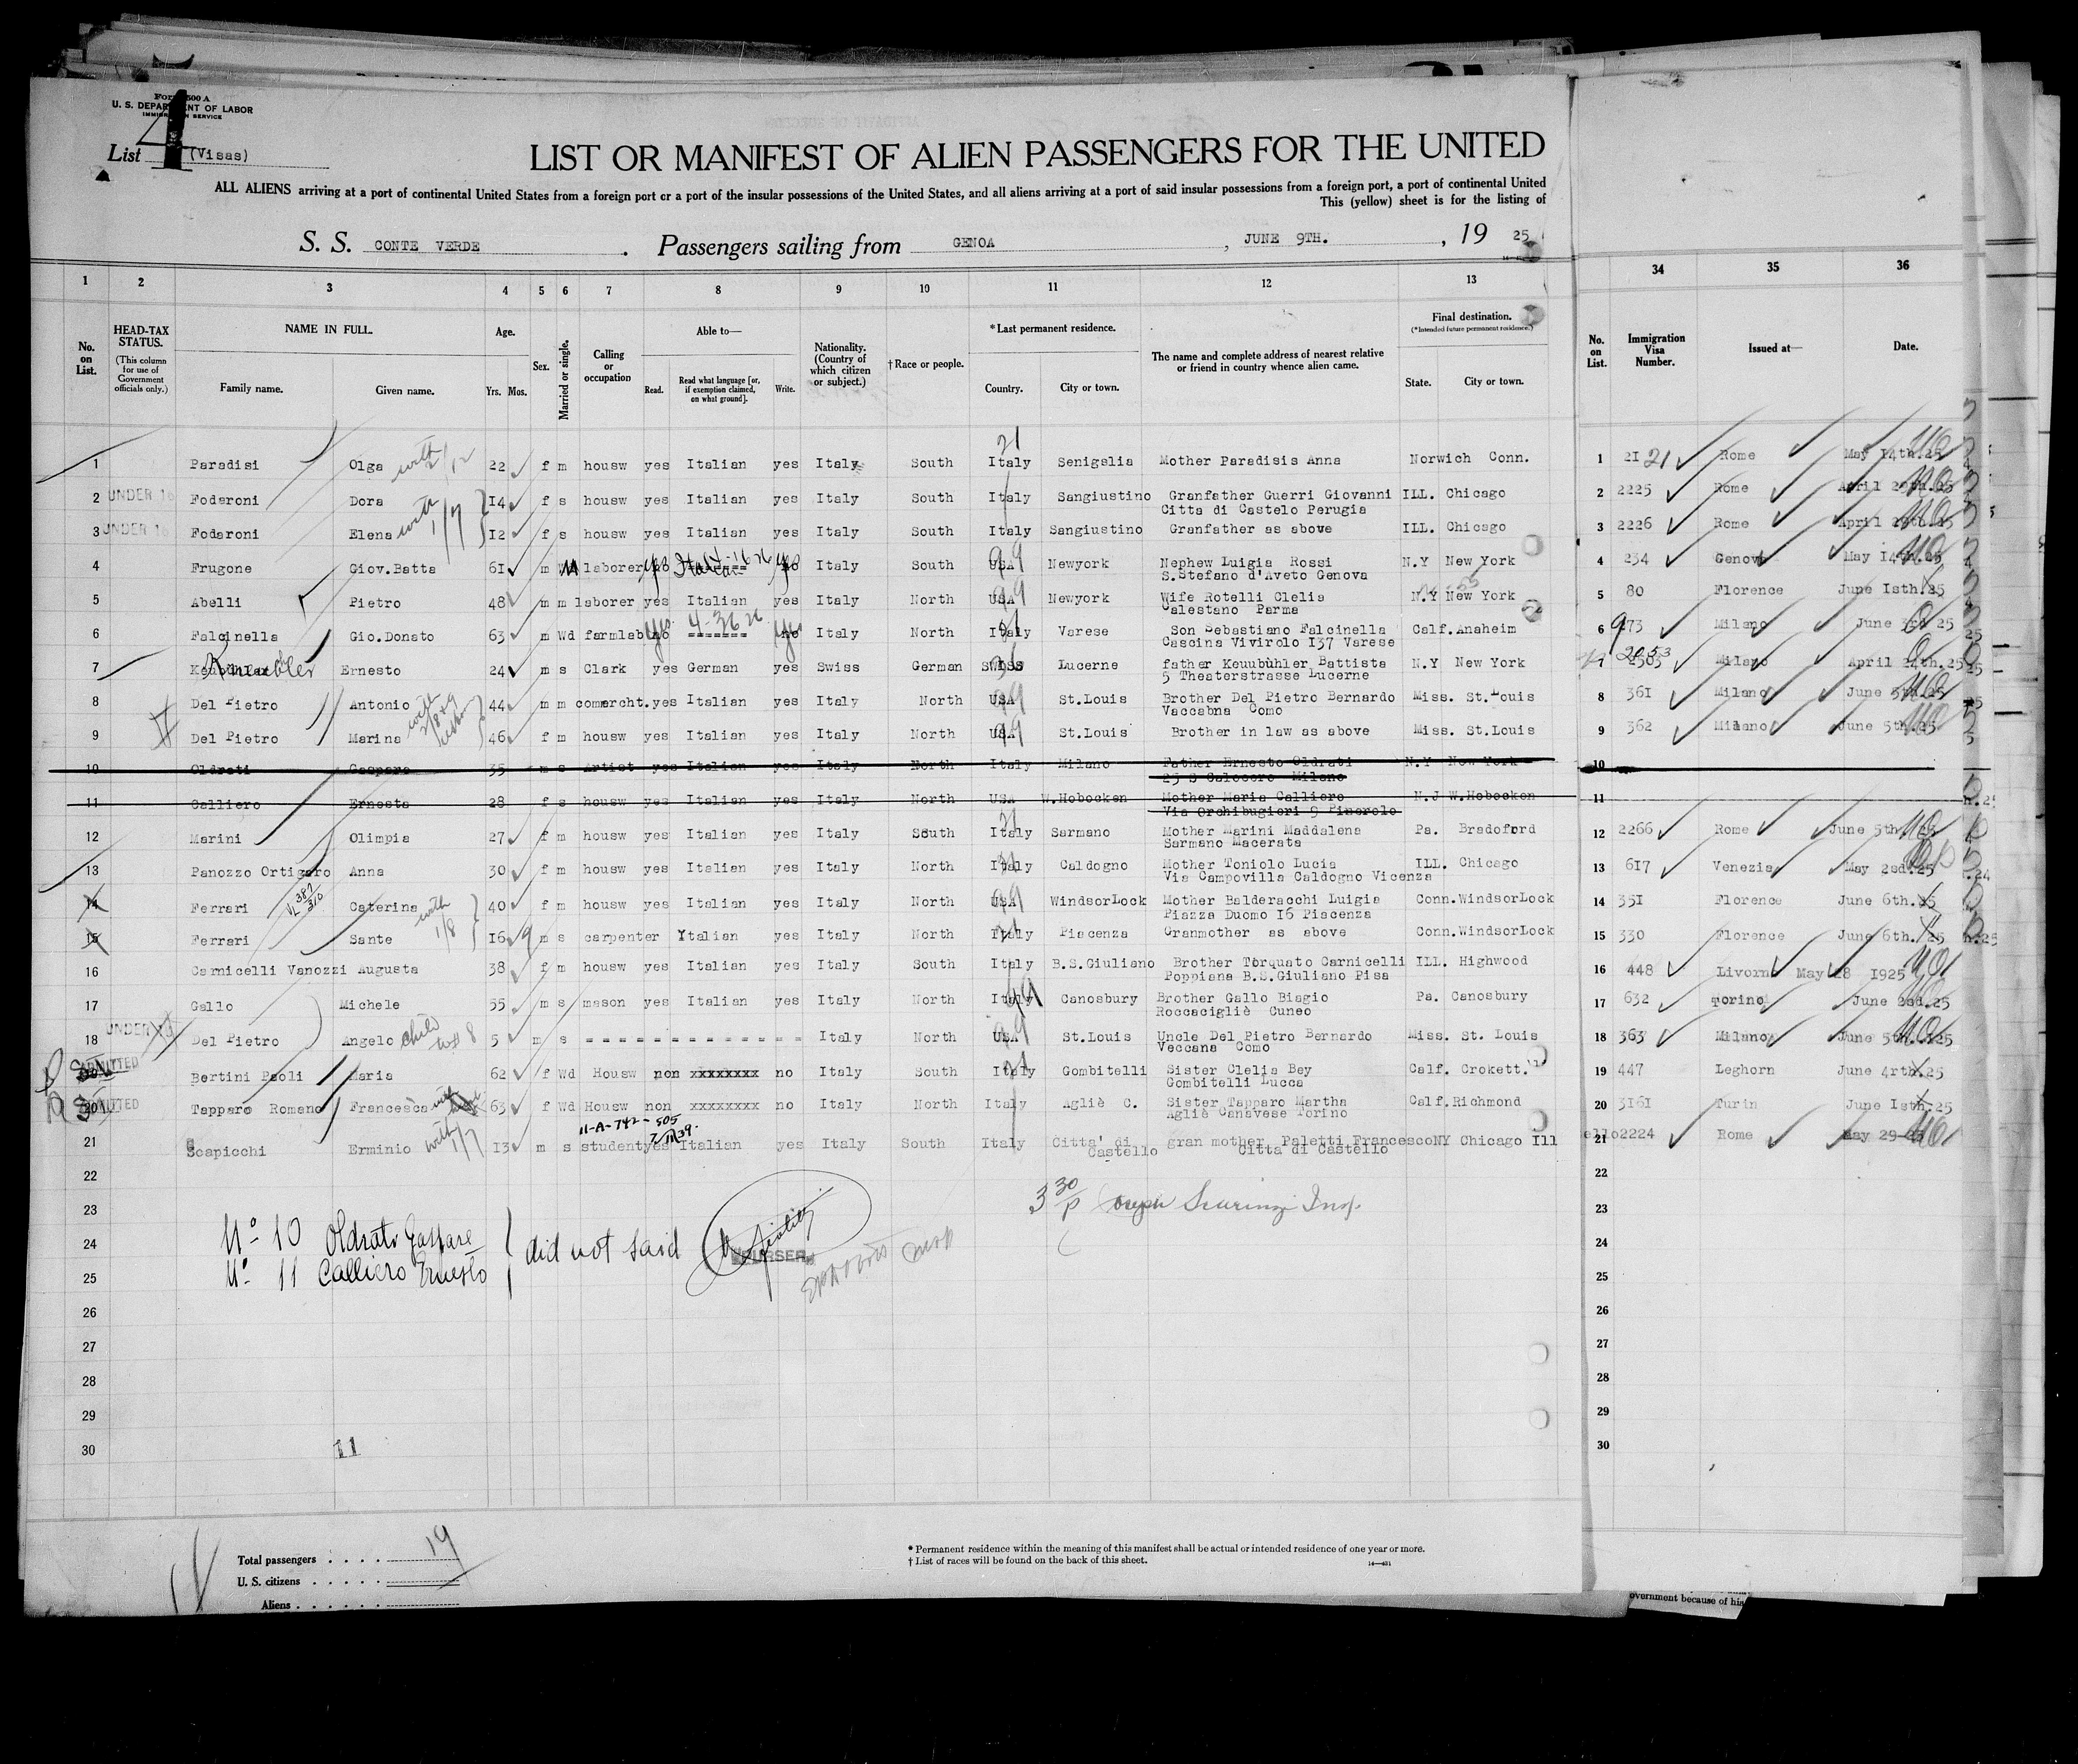 Form 500 A
U. S. DEPARTMENT OF LABOR
IMMIGRATION SERVICE
List 4 (Visas)
LIST OR MANIFEST OF ALIEN PASSENGERS FOR THE UNITED
ALL ALIENS arriving at a port of continental United States from a foreign port or a port of the insular possessions of the United States, and all aliens arriving at a port of said insular possessions from a foreign port, a port of continental United
This (yellow) sheet is for the listing of
S. S. CONTE VERDE . Passengers sailing from GENOA , JUNE 9TH. , 19 25
1 2 3 4 5 6 7 8 9 10 11 12 13 34 35 36
No. on List.
HEAD-TAX STATUS.
(This column for use of Government officials only.)
NAME IN FULL.
Family name. Given name.
Age.
Yrs. Mos.
Sex.
Married or single.
Calling or occupation
Able to—
Read. Read what language [or, if exemption claimed, on what ground]. Write.
Nationality. (Country of which citizen or subject.)
† Race or people.
* Last permanent residence.
Country. City or town.
The name and complete address of nearest relative or friend in country whence alien came.
Final destination.
(* Intended future permanent residence.)
State. City or town.
No. on List.
Immigration Visa Number.
Issued at—
Date.
1 Paradisi Olga with 22 f m housw yes Italian yes Italy South Italy Senigalia Mother Paradisis Anna Norwich Conn. 1 2121 Rome May 14th.25
2 UNDER 16 Fodaroni Dora 14 f s housw yes Italian yes Italy South Italy Sangiustino Granfather Guerri Giovanni ILL. Chicago 2 2225 Rome April 29th.25
Citta di Castelo Perugia
3 UNDER 16 Fodaroni Elena with 1/7 12 f s housw yes Italian yes Italy South Italy Sangiustino Granfather as above ILL. Chicago 3 2226 Rome April 29th.25
4 Frugone Giov.Batta 61 m M laborer yes Italian yes Italy South USA Newyork Nephew Luigia Rossi N.Y New York 4 234 Genova May 14th.25
S.Stefano d'Aveto Genova
5 Abelli Pietro 48 m m laborer yes Italian yes Italy North USA Newyork Wife Rotelli Clelia N.Y New York 5 80 Florence June 1sth.25
Calestano Parma
6 Falcinella Gio.Donato 63 m Wd farmlab no ------- no Italy North Italy Varese Son Sebastiano Falcinella Calf. Anaheim 6 973 Milano June 3rd 25
Cascina Vivirolo 137 Varese
7 Ernesto 24 m s Clark yes German yes Swiss German Swiss Lucerne father Keuubùhler Battista N.Y New York 7 2053 Milano April 24th.25
5 Theaterstrasse Lucerne
8 Del Pietro Antonio 44 m m comercht. yes Italian yes Italy North USA St.Louis Brother Del Pietro Bernardo Miss. St.Louis 8 361 Milano June 5th.25
Vaccabna Como
9 Del Pietro Marina with husband 46 f m housw yes Italian yes Italy North USA St.Louis Brother in law as above Miss. St.Louis 9 362 Milano June 5th.25
10 Oldrati Gaspare 35 m s Artist yes Italian yes Italy North Italy Milano Father Ernesto Oldrati N.Y New York 10
23 S Calocero Milano
11 Calliero Ernesta 28 f s housw yes Italian yes Italy North USA W.Hobocken Mother Maria Calliero N.J W.Hobocken 11
Via Orchibugieri 9 Pinerolo
12 Marini Olimpia 27 f m housw yes Italian yes Italy South Italy Sarmano Mother Marini Maddalena Pa. Bradoford 12 2266 Rome June 5th.25
Sarmano Macerata
13 Panozzo Ortigaro Anna 30 f m housw yes Italian yes Italy North Italy Caldogno Mother Toniolo Lucia ILL. Chicago 13 617 Venezia May 2sd.25
Via Campovilla Caldogno Vicenza
14 Ferrari Caterina 40 f m housw yes Italian yes Italy North USA WindsorLock Mother Balderacchi Luigia Conn.WindsorLock 14 351 Florence June 6th.25
Piazza Duomo 16 Piacenza
15 Ferrari Sante with 1/8 16 m s carpenter Ytalian yes Italy North Italy Piacenza Granmother as above Conn.WindsorLock 15 330 Florence June 6th. 25
16 Carnicelli Vanozzi Augusta 38 f m housw yes Italian yes Italy South Italy B.S.Giuliano Brother Torquato Carnicelli ILL. Highwood 16 448 Livorno May 28 1925
Poppiana B.S.Giuliano Pisa
17 Gallo Michele 55 m s mason yes Italian yes Italy North Italy Canosbury Brother Gallo Biagio Pa. Canosbury 17 632 Torino June 2sd.25
Roccacigliè Cuneo
18 UNDER 16 Del Pietro Angelo child 5 m s - - - - - - - - - - - - - Italy North USA St.Louis Uncle Del Pietro Bernardo Miss. St. Louis 18 363 Milano June 5th.125
Veccana Como
ADMITTED Bertini Paoli Maria 62 f Wd Housw non xxxxxxxx no Italy South Italy Gombitelli Sister Clelia Bey Calf. Crokett. 19 447 Leghorn June 4rth.25
Gombitelli Lucca
20 ADMITTED Tapparo Romano Francesca 63 f Wd Housw non xxxxxxxx no Italy North Italy Agliè C. Sister Tapparo Martha Calf.Richmond 20 3161 Turin June 1sth.25
Agliè Canavese Torino
11-A-742-505
7/11/39.
21 Scapicchi Erminio with 1/7 13 m s student yes Italian yes Italy South Italy Citta' di Castello gran mother Paletti Francesco NY Chicago Ill 21 2224 Rome May 29-25
Citta di Castello
22 22
23 23
24 24
25 25
26 26
27 27
28 28
29 29
30 30
3 30/P Joseph Scurinzi Insp.
No 10 Oldrati Gaspare
No 11 Calliero Ernesto
did not said
PURSER.
11
Total passengers . . . . 19
U. S. citizens . . . . .
Aliens . . . . . .
* Permanent residence within the meaning of this manifest shall be actual or intended residence of one year or more.
† List of races will be found on the back of this sheet.
14—431
overnment because of his